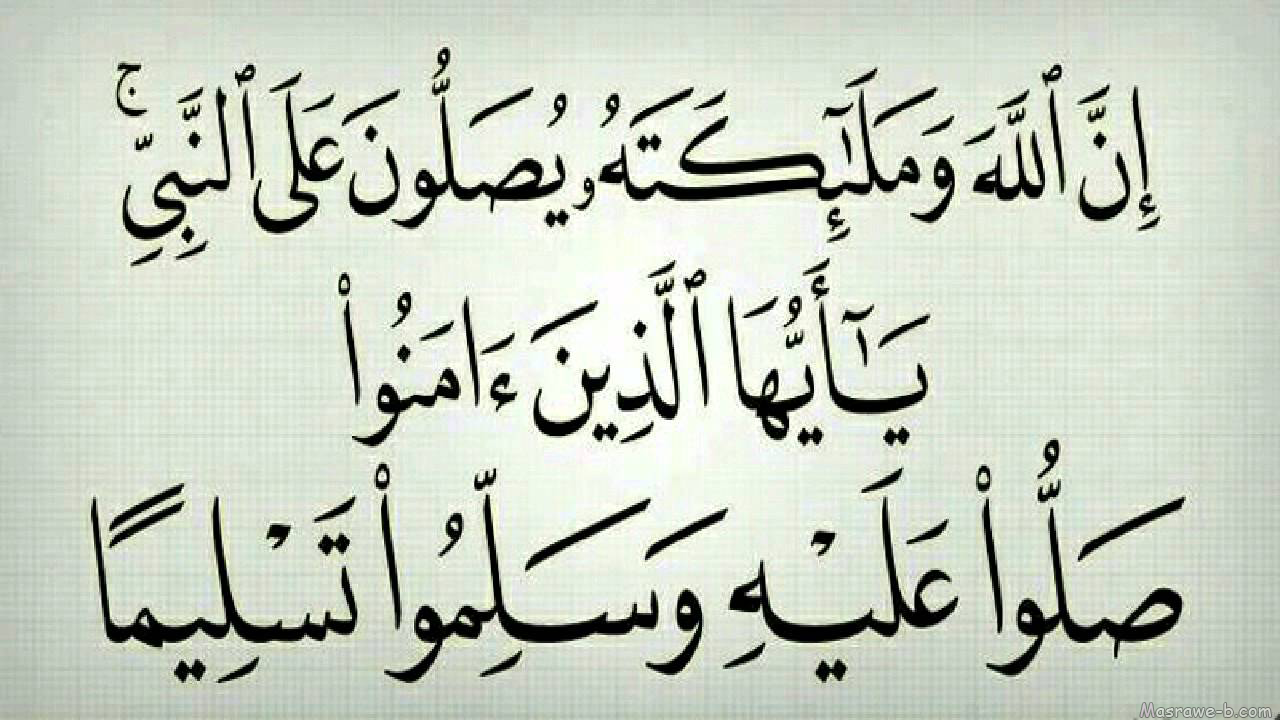 إِنَّ ٱللَّهَ وَمَلَـٰٓئِكَتَهُۥ يُصَلُّونَ عَلَى ٱلنَّبِىِّ ۚ
يَـٰٓأَيُّهَا ٱلَّذِينَ ءَامَنُوا۟
صَلُّوا۟ عَلَيْهِ وَسَلِّمُوا۟ تَسْلِيمًا
Masrawe-b.com